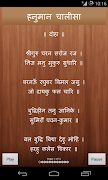 10:16
हनुमान चालीसा
॥ दोहा ॥
श्रीगुरु चरन सरोज रज
निज मनु मुकुरु सुधारि
बरनऊँ रघुबर बिमल जसु
जो दायकु फल चारि
बुद्धिहीन तनु जानिके
सुमिरौं पवन-कुमार
बल बुद्धि बिद्या देहु मोहिं
हरहु कलेस बिकार
Play
Pause